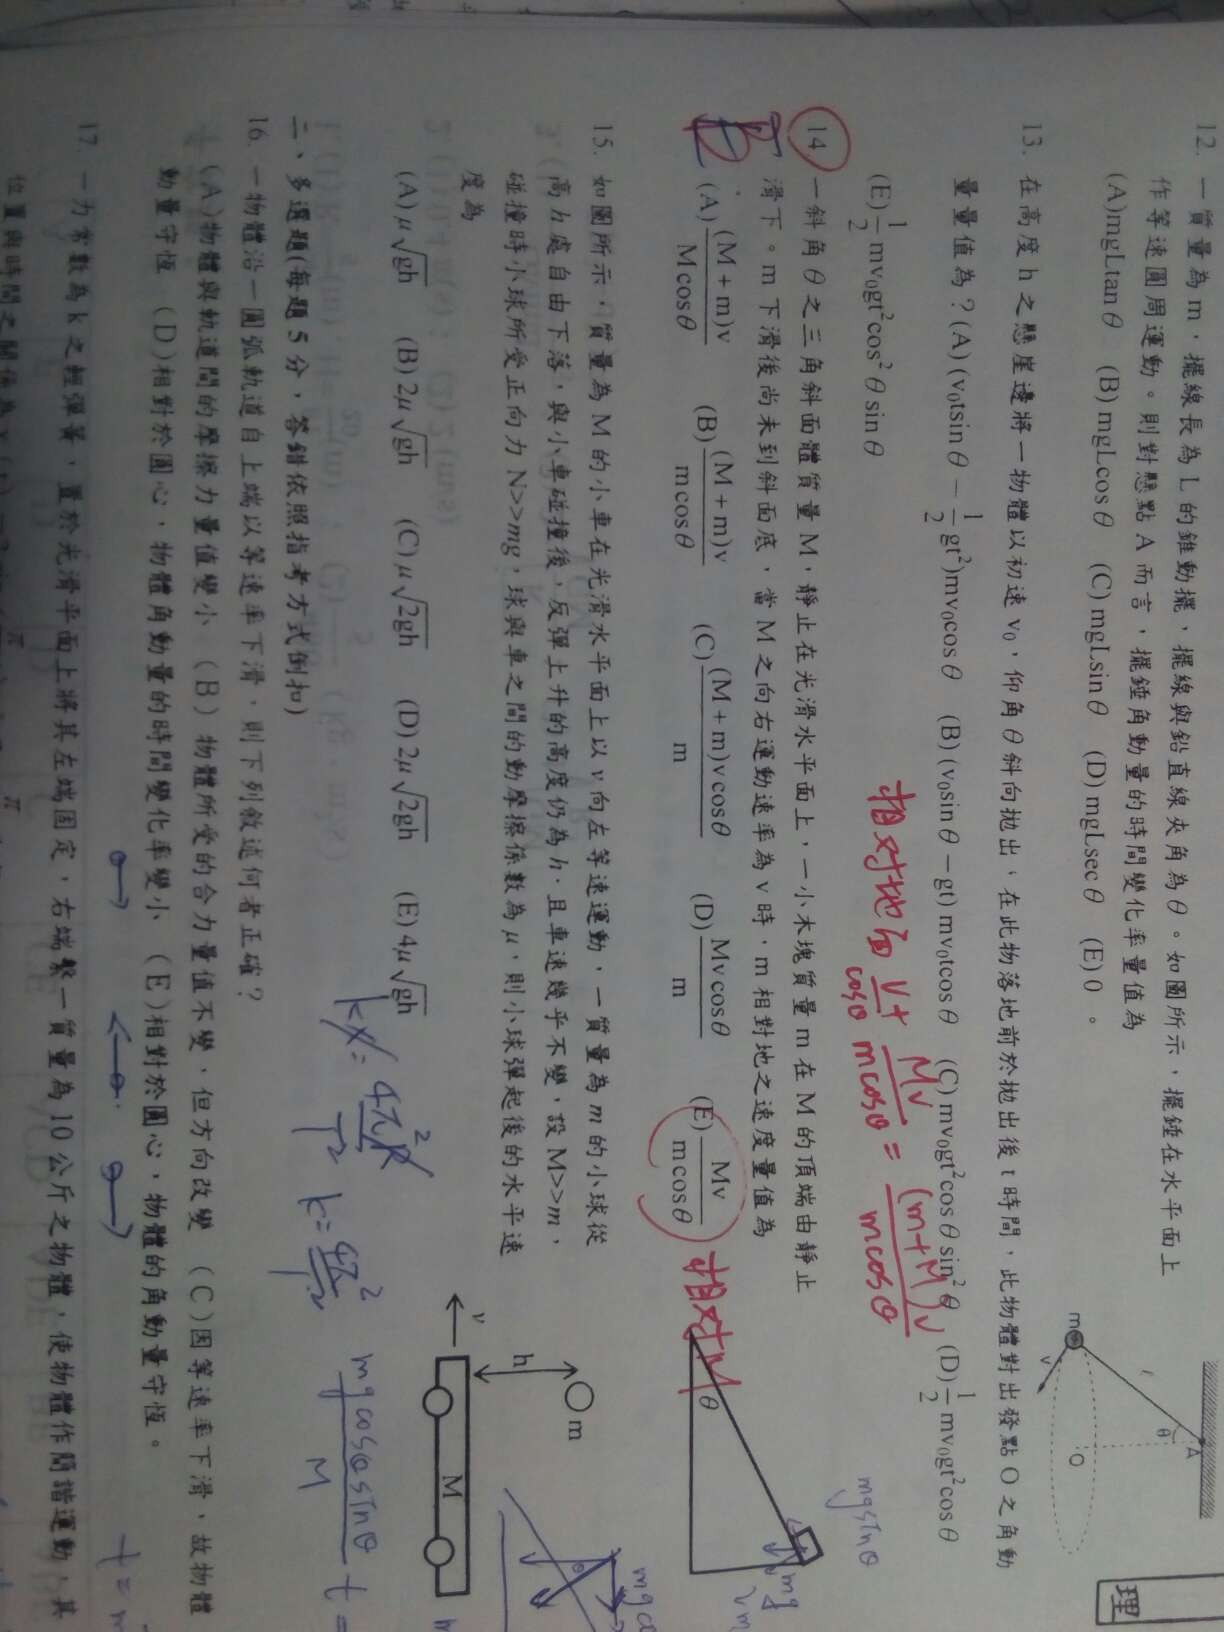 理
12. 一質量為m，擺線長為L的錐動擺，擺線與鉛直線夾角為θ。如圖所示，擺錘在水平面上
作等速圓周運動。則對懸點A而言，擺錘角動量的時間變化率量值為
(A)mgLtanθ (B) mgLcosθ (C) mgLsinθ (D) mgLsecθ (E) 0 。
A
θ
O
m
v
13. 在高度h之懸崖邊將一物體以初速v₀，仰角θ斜向拋出，在此物落地前於拋出後t時間，此物體對出發點O之角動
量量值為？(A) (v₀tsinθ − 1/2 gt²)mv₀cosθ (B) (v₀sinθ − gt) mv₀tcosθ (C) mv₀gt²cosθ sin²θ (D) 1/2 mv₀gt²cosθ
(E) 1/2 mv₀gt²cos²θ sinθ
相對地面 v/cosθ + Mv/mcosθ = (m+M)v/mcosθ
mgsinθ
14. 一斜角θ之三角斜面體質量M，靜止在光滑水平面上，一小木塊質量m在M的頂端由靜止
滑下。m下滑後尚未到斜面底，當M之向右運動速率為v時，m相對地之速度量值為
(A) (M+m)v/Mcosθ (B) (M+m)v/mcosθ (C) (M+m)vcosθ/m (D) Mvcosθ/m (E) Mv/mcosθ
相對M
θ
mg
15. 如圖所示，質量為M的小車在光滑水平面上以v向左等速運動，一質量為m的小球從
高h處自由下落，與小車碰撞後，反彈上升的高度仍為h．且車速幾乎不變，設M>>m，
碰撞時小球所受正向力N>>mg，球與車之間的動摩擦係數為μ，則小球彈起後的水平速
度為
(A) μ√gh (B) 2μ√gh (C) μ√2gh (D) 2μ√2gh (E) 4μ√gh
m
h
v
M
mgcosθsinθ/M
二、多選題(每題5分，答錯依照指考方式倒扣)
16. 一物體沿一圓弧軌道自上端以等速率下滑，則下列敘述何者正確？
(A)物體與軌道間的摩擦力量值變小 (B) 物體所受的合力量值不變，但方向改變 (C)因等速率下滑，故物體
動量守恆 (D)相對於圓心，物體角動量的時間變化率變小 (E)相對於圓心，物體的角動量守恆。
17. 一力常數為k之輕彈簧，置於光滑平面上將其左端固定，右端繫一質量為10公斤之物體，使物體作簡諧運動，其
位置與時間之關係為